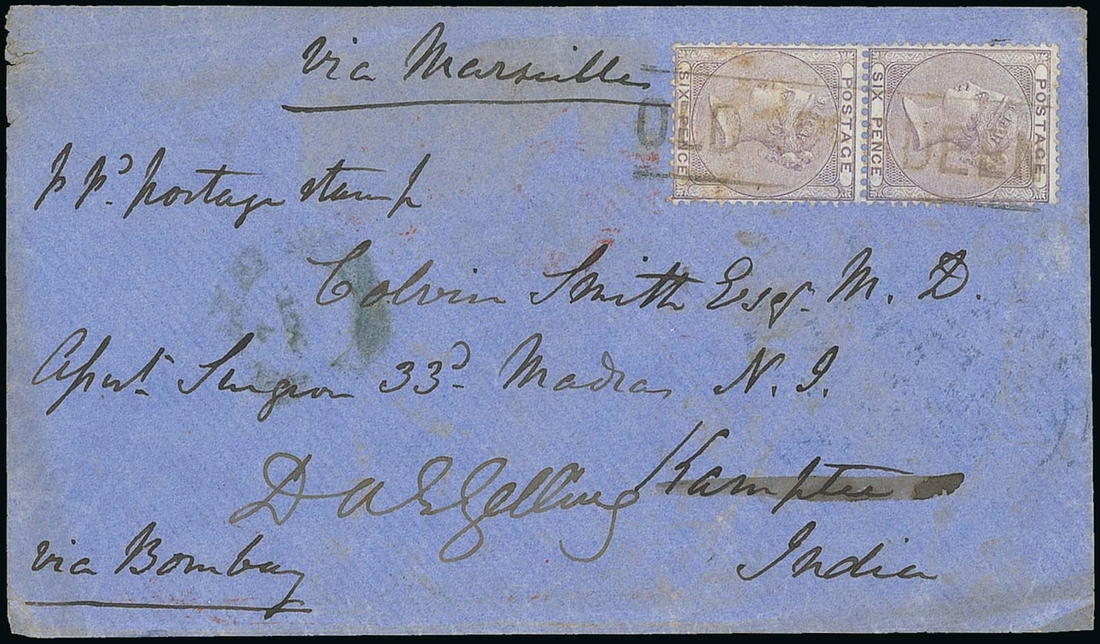 via Marseilles
SIX PENCE POSTAGE SIX PENCE POSTAGE
p pd. postage stamp
Colvin Smith Esqr. M. D.
Assist. Surgeon 33d. Madras N. I.
Kamptee
via Bombay
India